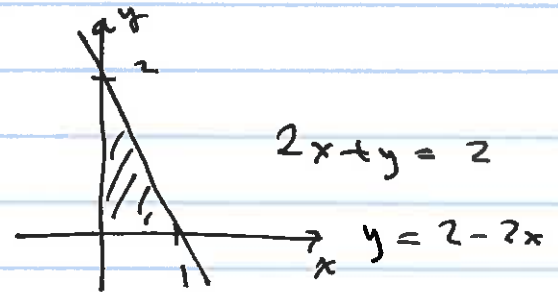 y
2
2x+y = 2
y = 2-2x
x
1